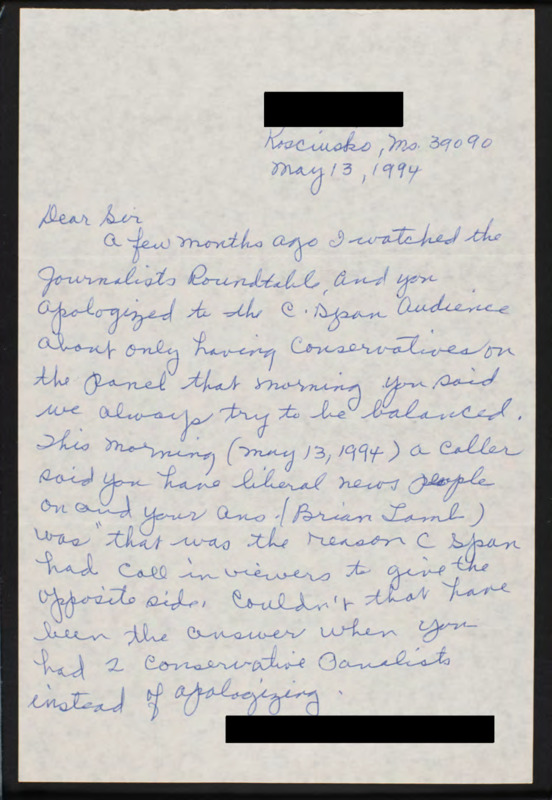 Kosciusko, Ms. 39090
May 13, 1994
Dear Sir
A few months ago I watched the
Journalists Roundtable, and you
apologized to the C. Span Audience
about only having Conservatives on
the panel that morning you said
we always try to be balanced.
This morning (May 13, 1994) a caller
said you have liberal news people
on and your ans. (Brian Lamb)
was "that was the reason C Span
had call in viewers to give the
opposite side. Couldn't that have
been the answer when you
had 2 conservative Panalists
instead of apologizing.